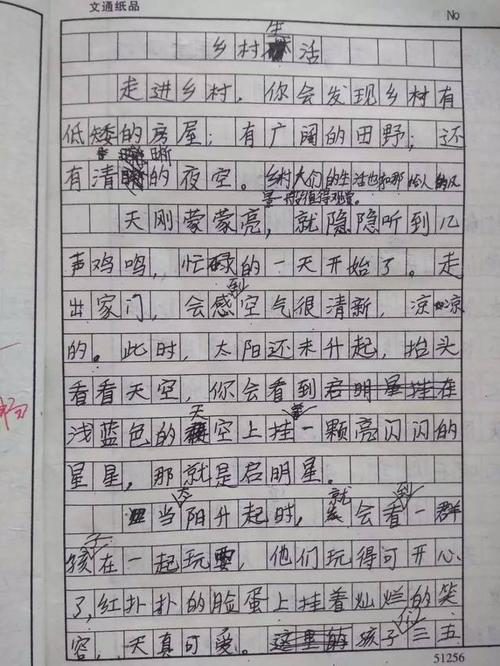 文通纸品
No
乡村生活
走进乡村，你会发现乡村有
低矮的房屋；有广阔的田野；还
有清晰的夜空。乡村人们的生活也和那
值得观赏。
天刚蒙蒙亮，就隐隐听到几
声鸡鸣，忙碌的一天开始了。走
出家门，会感到空气很清新，凉凉
的。此时，太阳还未升起，抬头
看看天空，你会看到启明星挂在
浅蓝色的天空上挂着一颗亮闪闪的
星星，那就是启明星。
当太阳升起时，就会看到一群
孩子在一起玩耍，他们玩得可开心
了，红扑扑的脸蛋上挂着灿烂的笑
容，天真可爱。这里的孩子们三五
51256